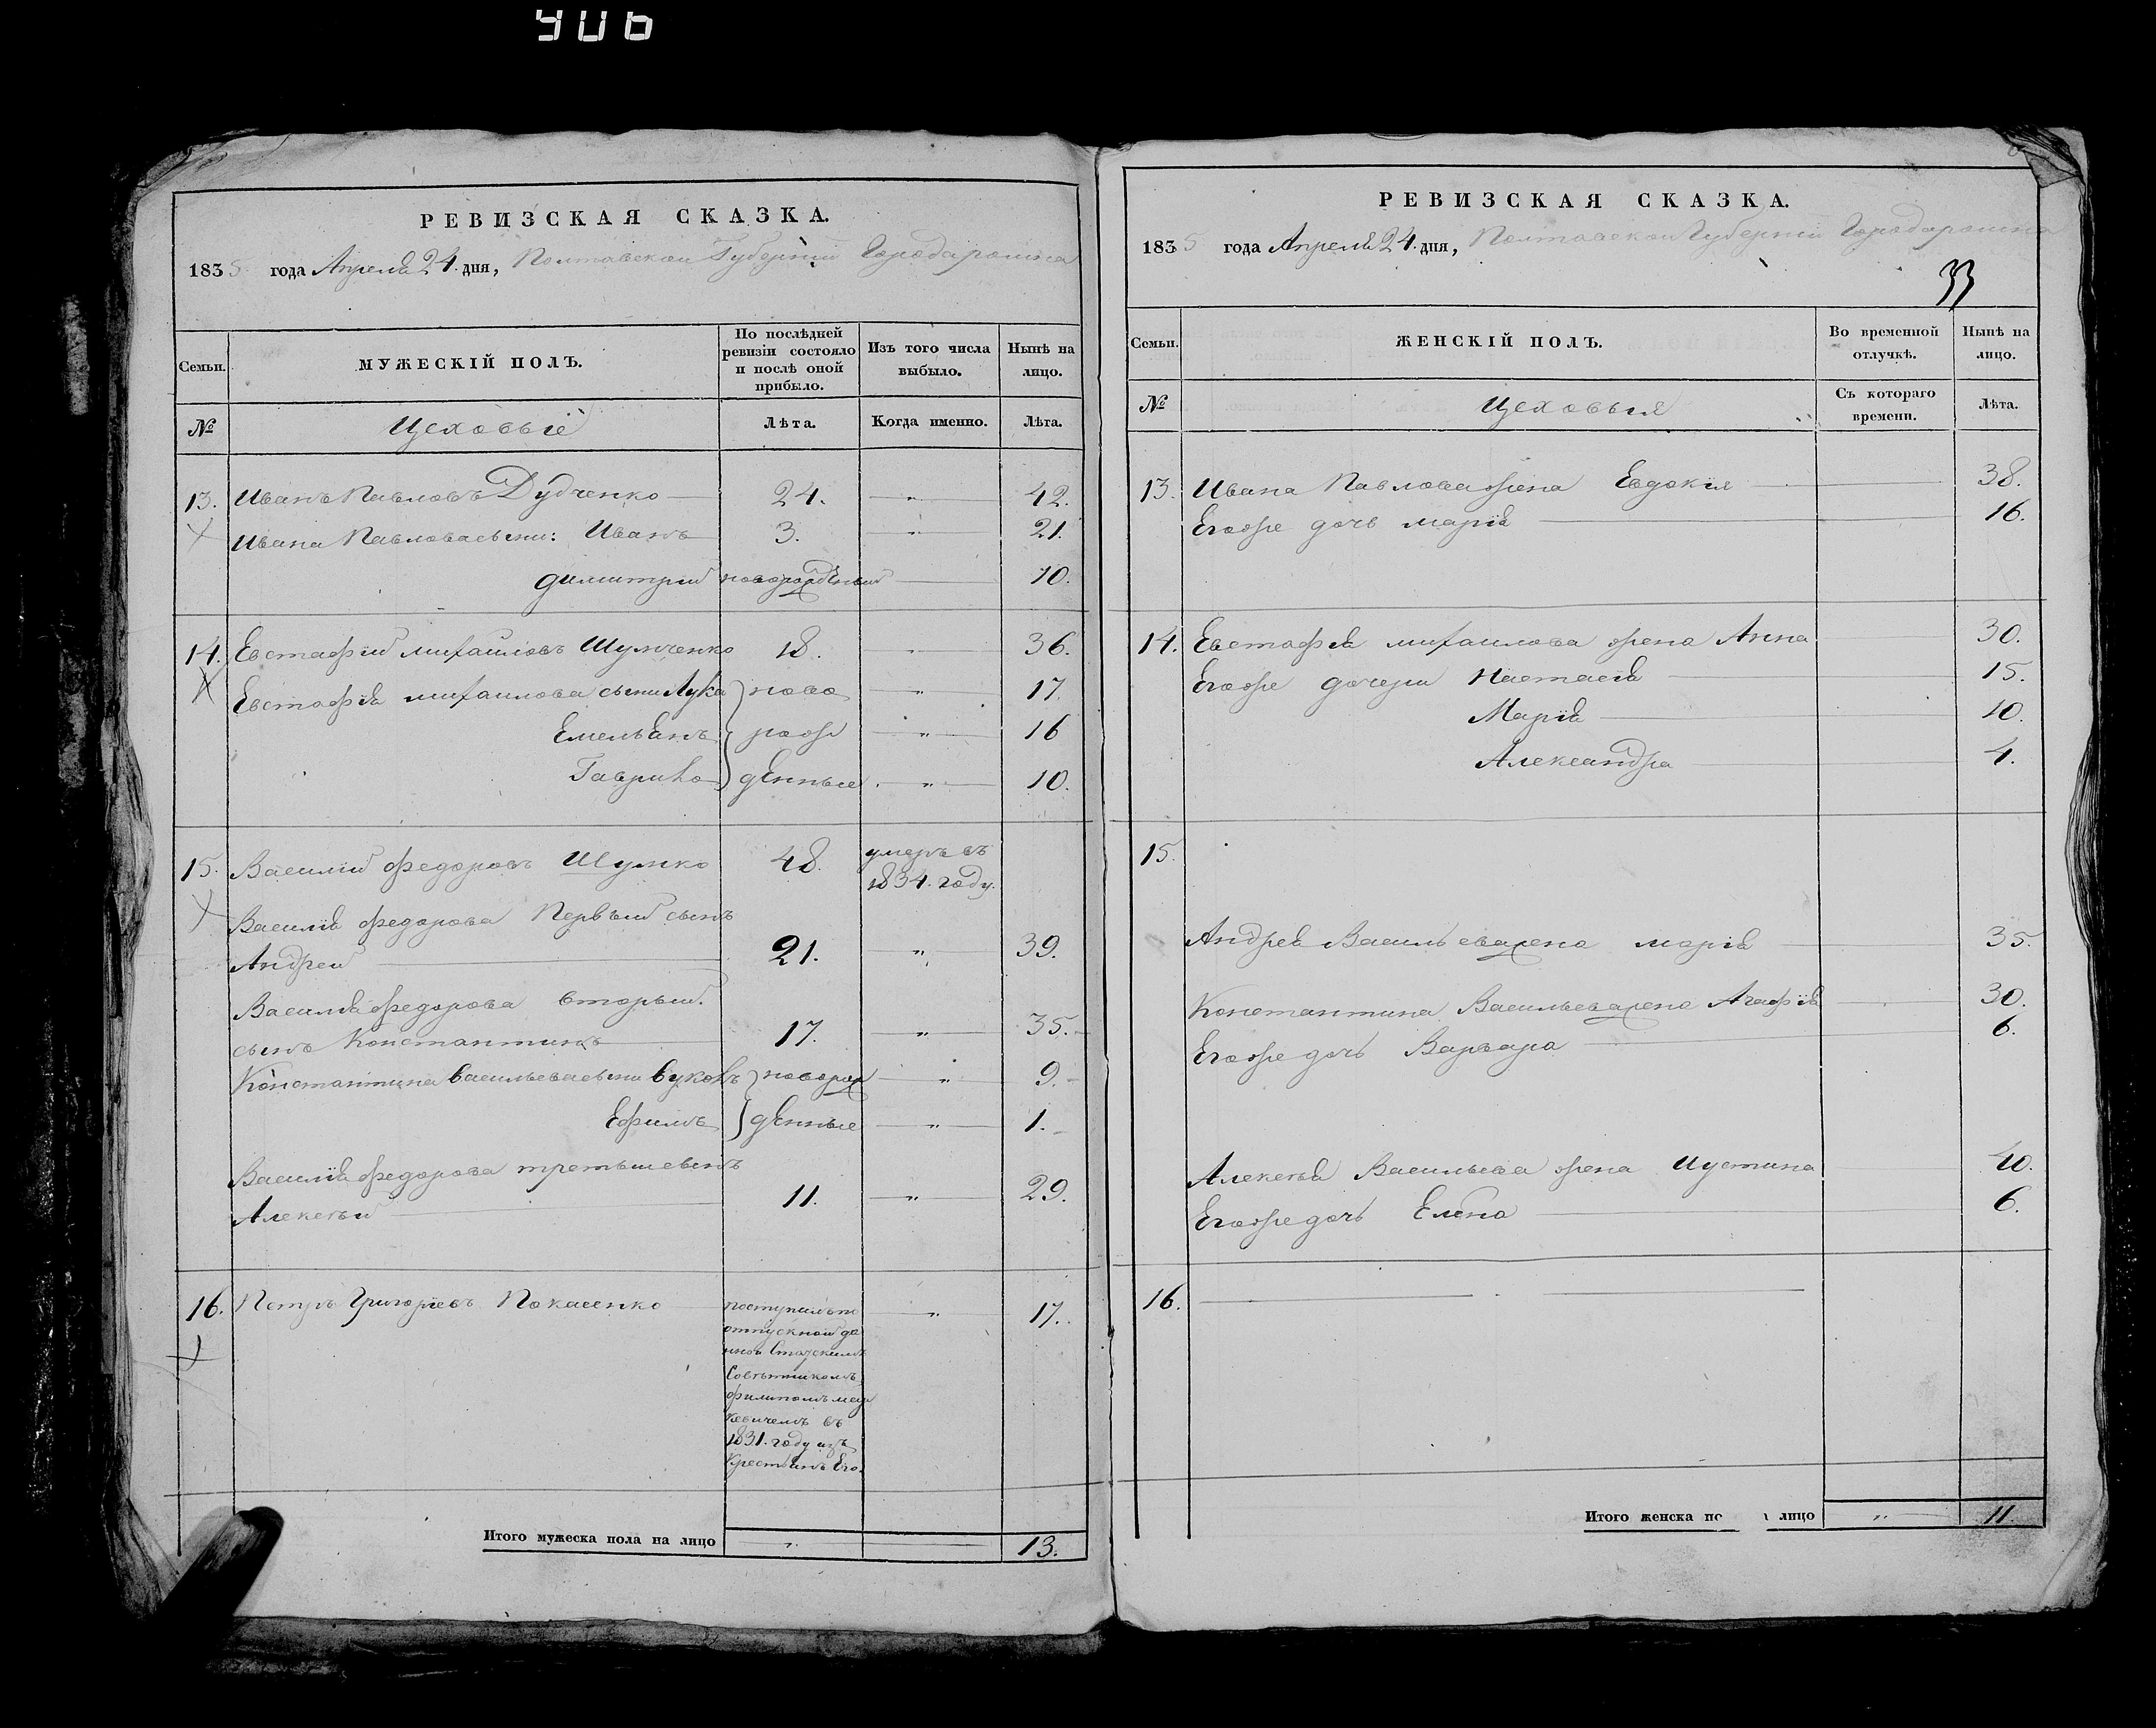 406
РЕВИЗСКАЯ СКАЗКА.
1835 года Апреля 24. дня, Полтавской Губернии Города
Семьи.
МУЖЕСКІЙ ПОЛЪ.
По послѣдней ревизіи состояло и послѣ оной прибыло.
Изъ того числа выбыло.
Нынѣ на лицо.
№
Цеховыіе
Лѣта.
Когда именно.
Лѣта.
13. Иванъ Павловъ Дудченко 24. " 42.
Ивана Павлова сыни: Иванъ 3. " 21.
Димитрий новорожденный 10.
14. Евстафiй Михайловъ Шумченко 18. " 36.
Евстафiя Михаилова сыни Лука ново " 17.
Емельянъ рож " 16
Гаврило денные " 10.
15. Василий Федоровъ Шумко 48. умеръ въ
1834. году.
Василiя Федорова Первый сынъ
Андрей 21. " 39.
Василия Федорова вторый
сынъ Константинъ 17. " 35.
Константина Васильева сыни новорож " 9.
Ефимъ денные " 1.
Василiя Федорова третый сынъ
Алексѣй 11. " 29.
16. Петръ Григорiевъ " 17.
поступилъ по
отпускной да
нной Статскимъ
Совѣтникомъ
Филипомъ Мар
кевичемъ въ
1831. году изъ
Крестьянъ Его.
Итого мужеска пола на лицо " 13.
РЕВИЗСКАЯ СКАЗКА.
1835 года Апреля 24. дня, Полтавской Губернии Города
33
Семьи.
ЖЕНСКІЙ ПОЛЪ.
Во временной отлучкѣ.
Нынѣ на лицо.
№
Цеховыя
Съ котораго времени.
Лѣта.
13. Ивана Павлова жена Евдокiя 38.
Егожe дочь марiя 16.
14. Евстафiя михаилова жена Анна 30.
Егоже дочери Настасiя 15.
Марiя 10.
Александра 4.
15.
Андрея Васильева жена марiя 35.
Константина Васильева жена Агафiя 30.
Егоже дочь Варвара 6.
Алексѣя Васильева жена Иустина 40.
Егоже дочь Елена 6.
16.
Итого женска по лицо " 11.